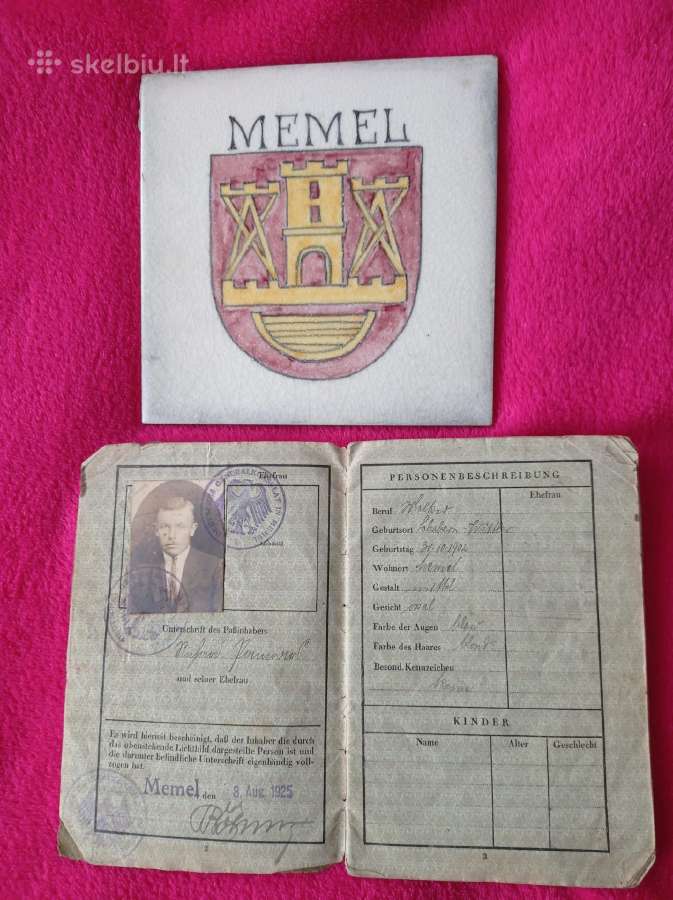 skelbiu.lt
MEMEL
Ehefrau
Unterschrift des Paßinhabers
und seiner Ehefrau
Es wird hiermit bescheinigt, daß der Inhaber die durch
das obenstehende Lichtbild dargestellte Person ist und
die darunter befindliche Unterschrift eigenhändig voll-
zogen hat.
Memel den 8. Aug. 1925
2
PERSONENBESCHREIBUNG
Ehefrau
Beruf
Geburtsort
Geburtstag
Wohnort Memel
Gestalt mittel
Gesicht oval
Farbe der Augen blau
Farbe des Haares blond
Besond. Kennzeichen
Keine
KINDER
Name Alter Geschlecht
3